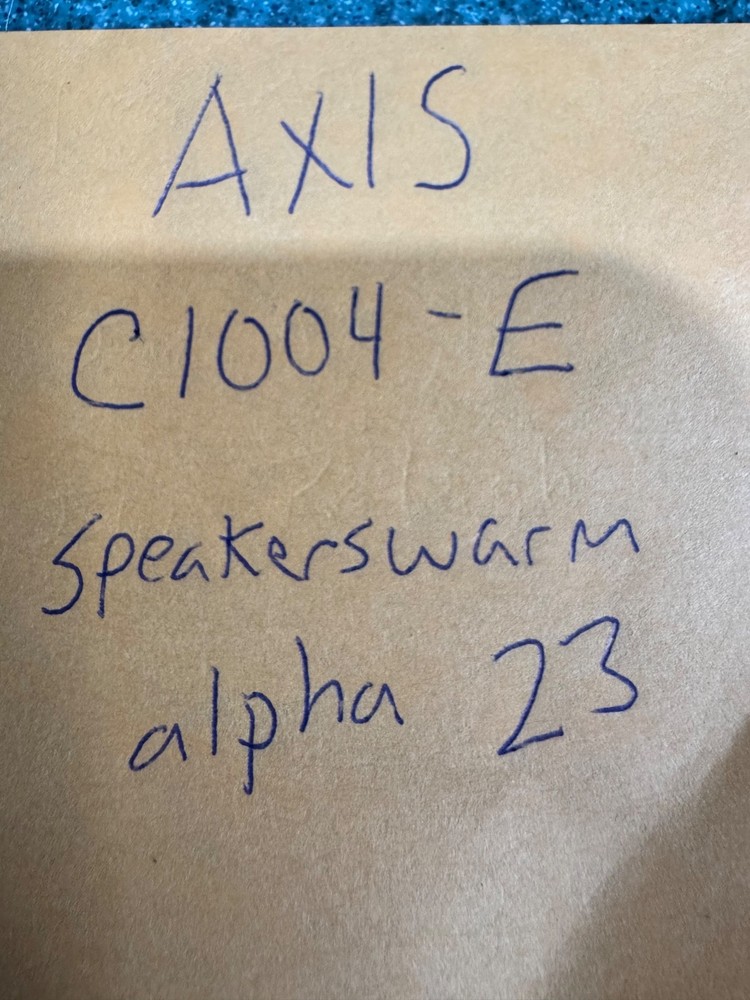 AXIS
C1004-E
speakerswarm
alpha 23